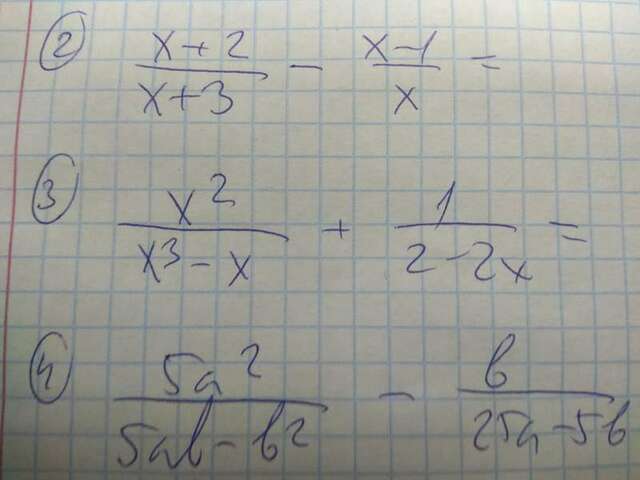 ② (x+2)/(x+3) - (x-1)/x =
③ x²/(x³-x) + 1/(2-2x) =
④ 5a²/(5ab-b²) - b/(25a-5b)